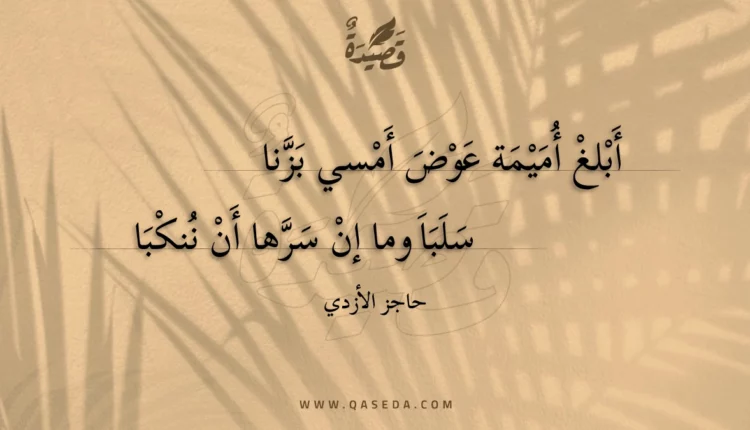 قَصِيْدَةٌ
أَبْلغْ أُمَيْمَة عَوْضَ أَمْسي بَزَّنا
سَلَبَاَ وما إنْ سَرَّها أَنْ نُنكْبَا
حاجز الأزدي
WWW.QASEDA.COM